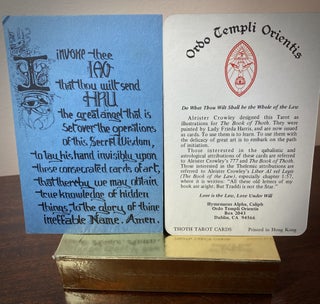 I
Invoke thee
IAO
that thou wilt send
HRU
the great angel that is
set over the operations
of this Secret Wisdom,
to lay his hand invisibly upon
these consecrated cards of art,
that thereby we may obtain
true knowledge of hidden
things, to the glory of thine
ineffable Name. Amen.
Ordo Templi Orientis
Do What Thou Wilt Shall be the Whole of the Law
Aleister Crowley designed this Tarot as
illustrations for The Book of Thoth. They were
painted by Lady Frieda Harris, and are now issued
as cards. To use them is to learn. To use them with
the delicacy of great art is to embark on the path of
initiation.
Those interested in the qabalistic and
astrological attributions of these cards are referred
to Aleister Crowley's 777 and The Book of Thoth.
Those interested in the Thelemic attributions are
referred to Aleister Crowley's Liber Al vel Legis
(The Book of the Law), especially chapter 1:57,
where it is written: "All these old letters of my
book are aright: But Tzaddi is not the Star."
Love is the Law, Love Under Will
Hymenaeus Alpha, Caliph
Ordo Templi Orientis
Box 2043
Dublin, CA 94566
THOTH TAROT CARDS
Printed in Hong Kong